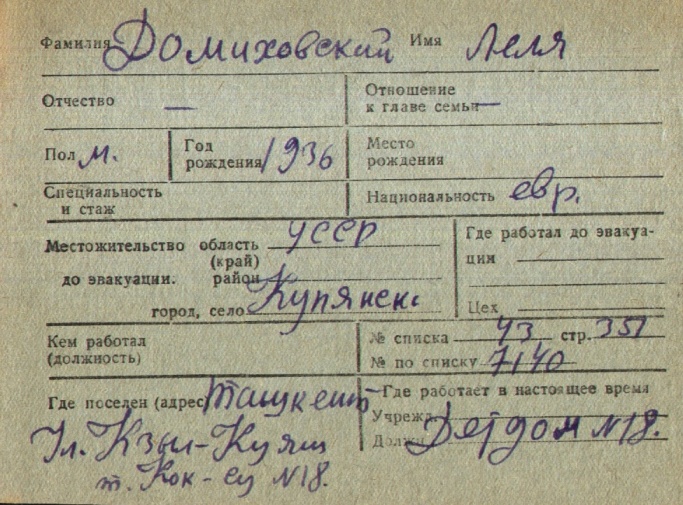 Фамилия Домиховский Имя Леля
Отчество — Отношение к главе семьи —
Пол м. Год рождения 1936 Место рождения
Специальность и стаж Национальность евр.
Местожительство область УССР Где работал до эвакуа-
(край) ции
до эвакуации. район
город, село Купянск Цех
Кем работал № списка 43 стр. 351
(должность) № по списку 7140
Где поселен (адрес) Ташкент Где работает в настоящее время
Ул. Кзыл-Куяш Учрежд. Детдом N18.
т. Кок-су N18. Должн